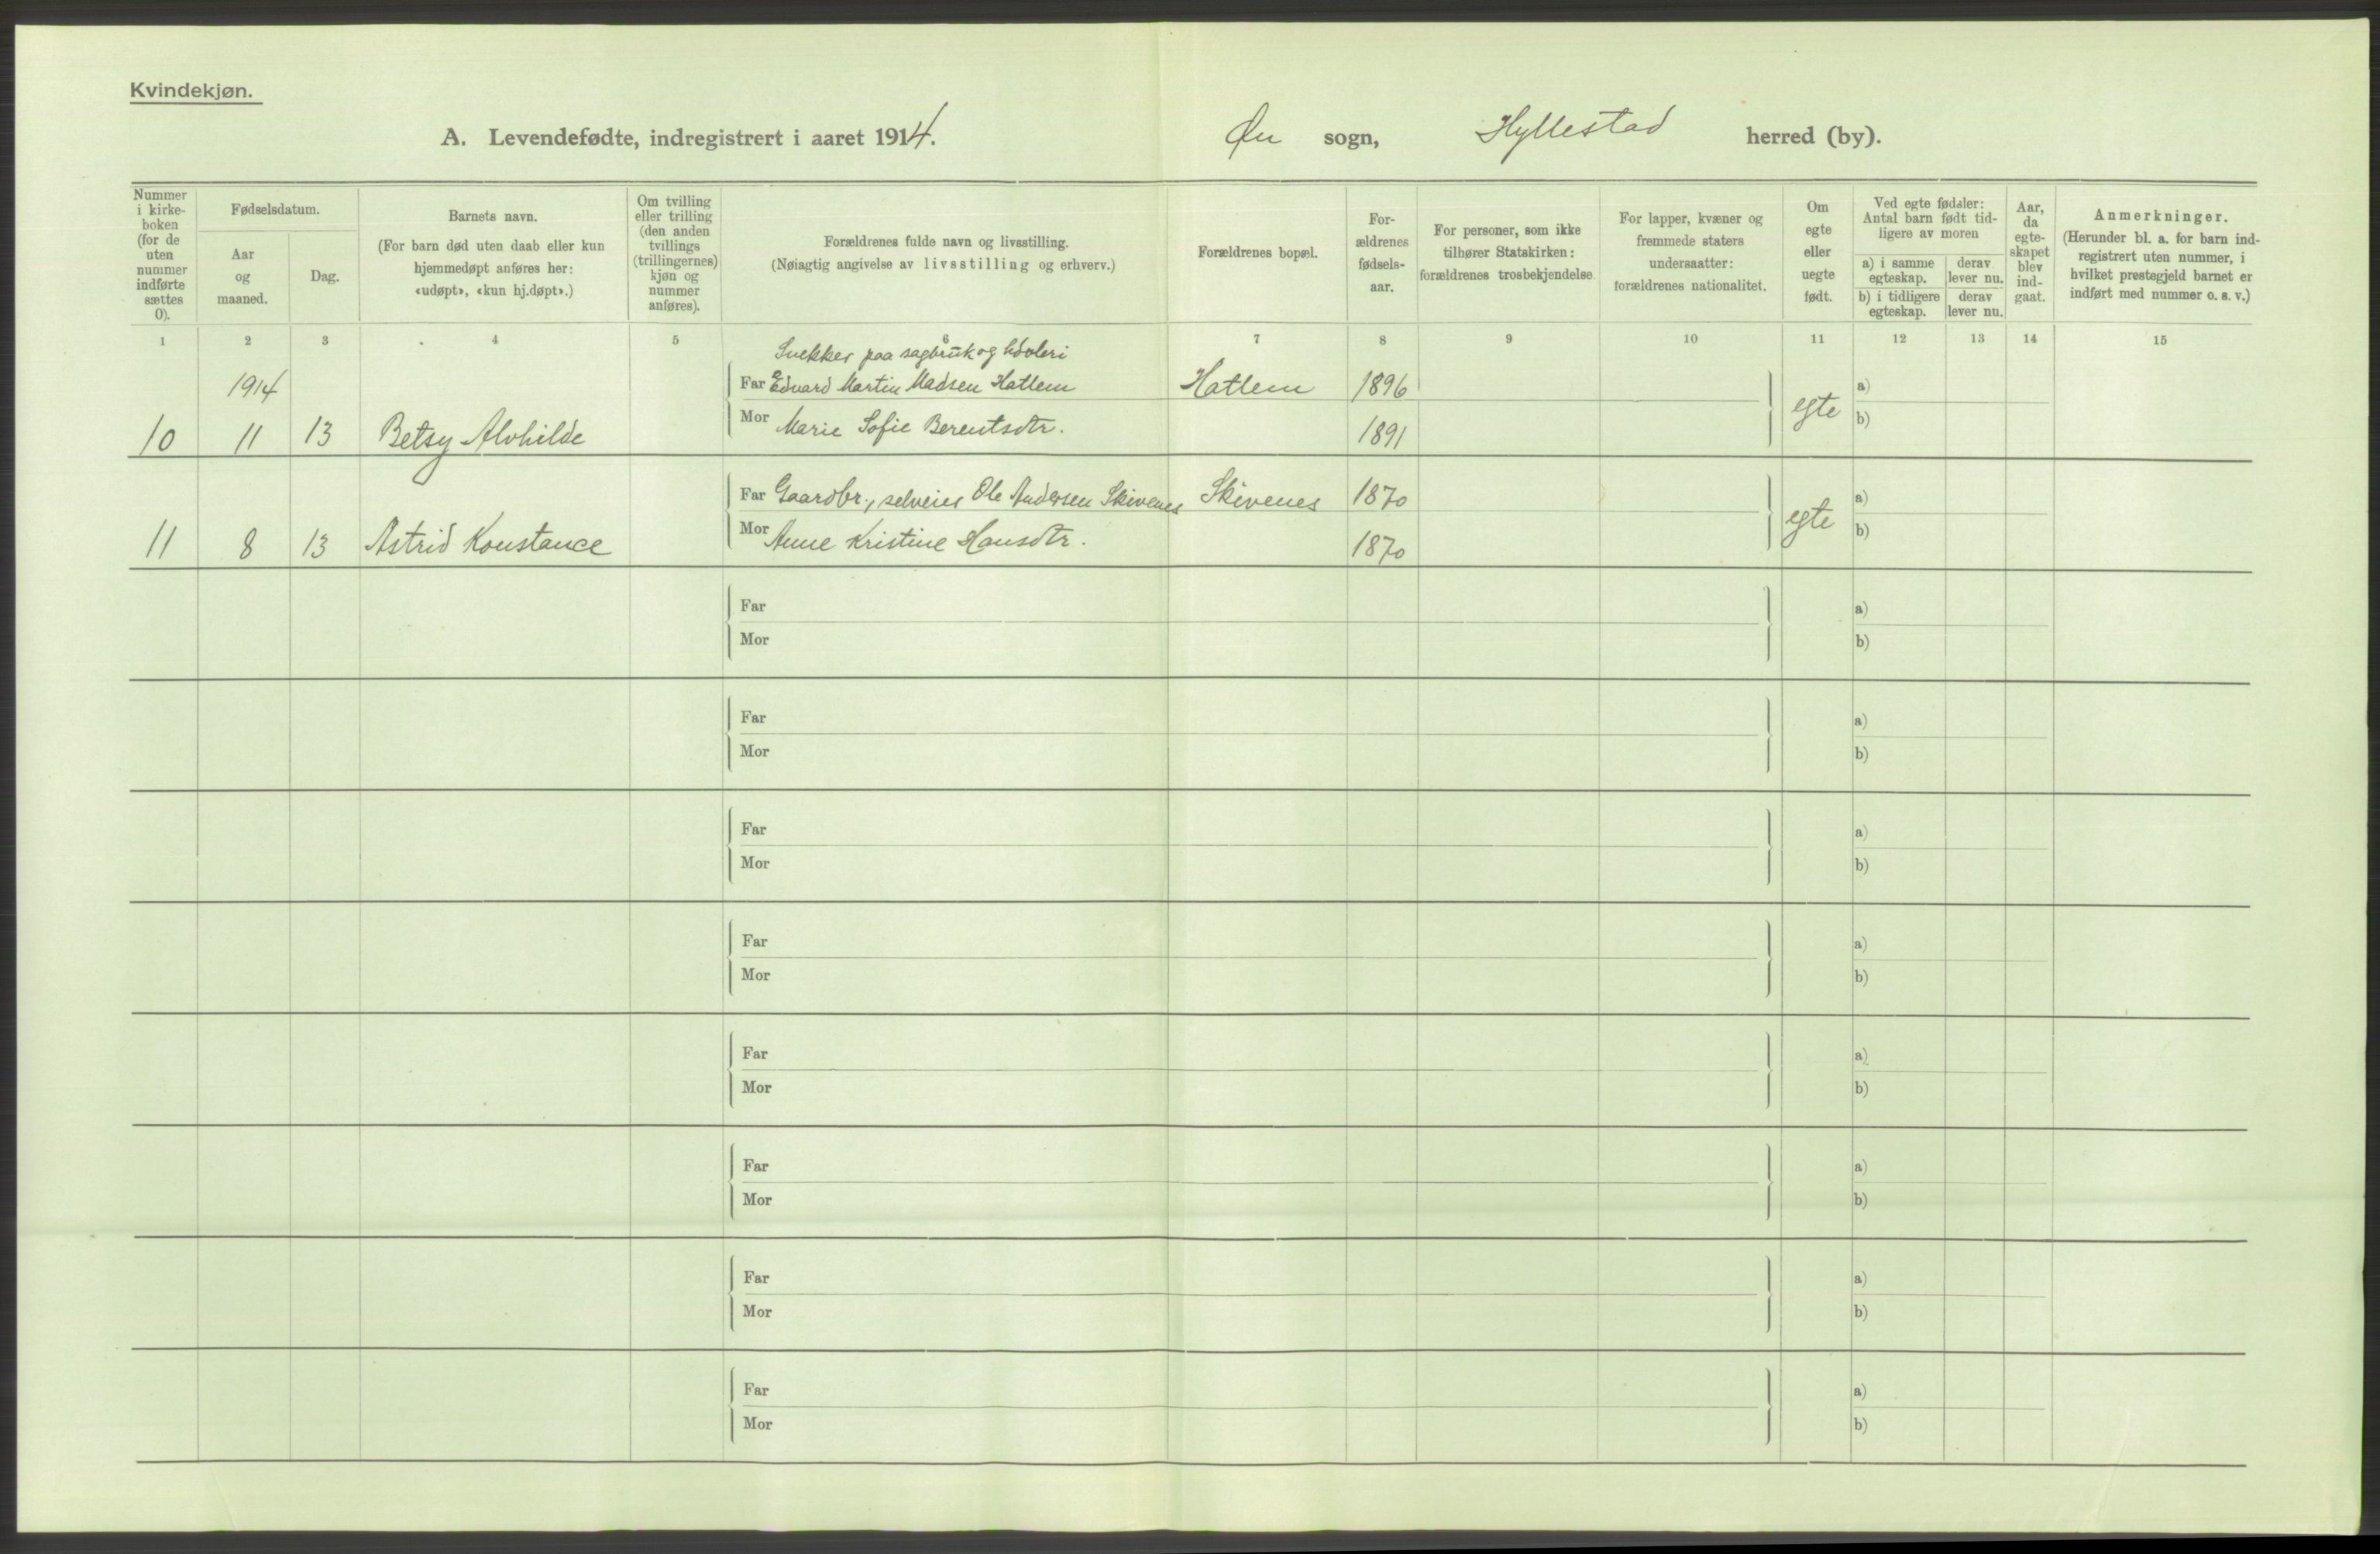 Kvindekjøn.
A. Levendefødte, indregistrert i aaret 1914. Øn sogn, Hyllestad herred (by).
Nummer i kirke-boken (for de uten nummer indførte sættes 0).
Fødselsdatum.
Aar og maaned.
Dag.
Barnets navn.
(For barn død uten daab eller kun
hjemmedøpt anføres her:
«udøpt», «kun hj.døpt».)
Om tvilling
eller trilling
(den anden
tvillings
(trillingernes)
kjøn og
nummer
anføres).
Forældrenes fulde navn og livsstilling.
(Nøiagtig angivelse av livsstilling og erhverv.)
Forældrenes bopæl.
For-
ældrenes
fødsels-
aar.
For personer, som ikke
tilhører Statskirken:
forældrenes trosbekjendelse
For lapper, kvæner og
fremmede staters
undersaatter:
forældrenes nationalitet.
Om
egte
eller
uegte
født.
Ved egte fødsler:
Antal barn født tid-
ligere av moren
a) i samme egteskap.
derav lever nu.
b) i tidligere egteskap.
derav lever nu.
Aar,
da
egte-
skapet
blev
ind-
gaat.
Anmerkninger.
(Herunder bl. a. for barn ind-
registrert uten nummer, i
hvilket prestegjeld barnet er
indført med nummer o. s. v.)
1 2 3 4 5 6 7 8 9 10 11 12 13 14 15
Snekker paa sagbruk og høvleri
1914 Far Edvard Martin Madsen Hatlem Hatlem 1896 a)
10 11 13 Betsy Alvhilde Mor Marie Sofie Berentsdtr. 1891 egte b)
Far Gaardbr., selveier Ole Andersen Skivenes Skivenes 1870 a)
11 8 13 Astrid Konstance Mor Anne Kristine Hansdtr. 1870 egte b)
Far a)
Mor b)
Far a)
Mor b)
Far a)
Mor b)
Far a)
Mor b)
Far a)
Mor b)
Far a)
Mor b)
Far a)
Mor b)
Far a)
Mor b)